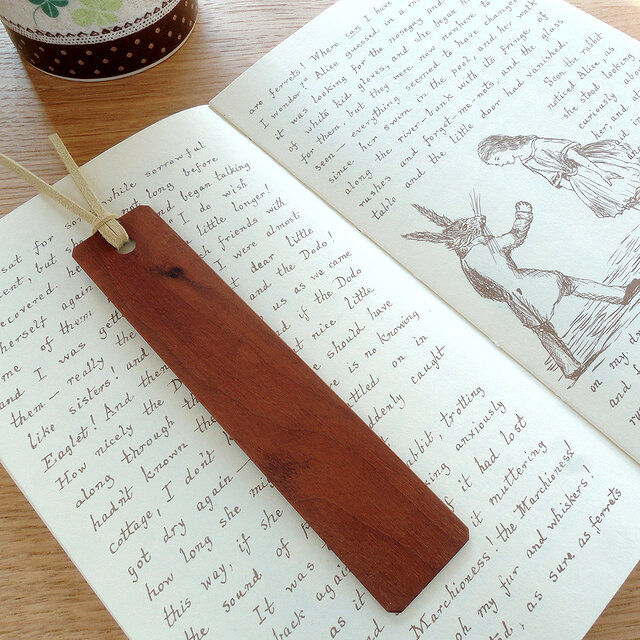 sat for so while sorrowful
but not long before
recovered he and began talking
herself again "I do wish
me of them a little longer!
and I was gett ch friends with
them — really the I were almost
like sisters! and dear little
Eaglet! And then and the Dodo!
How nicely the D us as we came
along through th d if the Dodo
hadn't known th t nice little
cottage, I don't k should have
got dry again— is no knowing
how long she mi ttled on in
this way, if she denly caught
the sound of p
It was abbit, trotting
back agai king anxiously
as it f it had lost
it muttering
Marchioness! the Marchioness!
my fur and whiskers!
ted, as sure as ferrets
are ferrets! Where can I have
I wonder?" Alice guessed in a m
it was looking for the nosegay and
of white kid gloves, and she began h
for them, but they were now nowhere to
seen — everything seemed to have changed
since her swim in the pool, and her walk
along the river-bank with its fringe of
rushes and forget-me-nots, and the glass
table and the little door had vanished.
Soon the rabbit
noticed Alice, as
she stood looking
curiously about
her, and at
out
on my d
and l